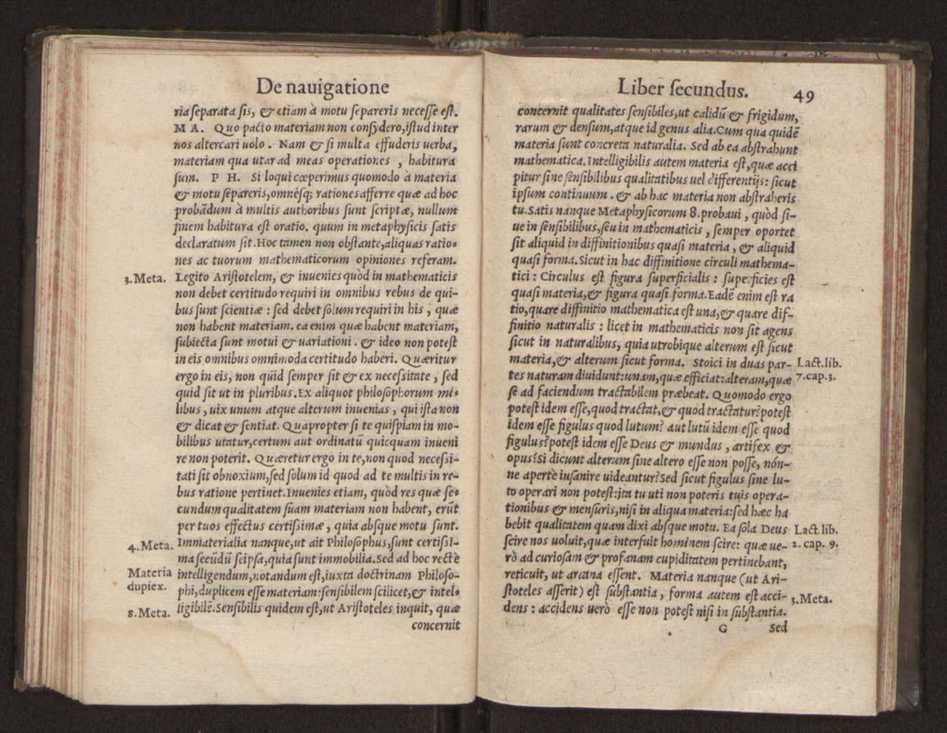 De nauigatione
ria separata sis, & etiam à motu separeris necesse est.
MA. Quo pacto materiam non consydero, istud inter
nos altercari uolo. Nam & si multa effuderis uerba,
materiam qua utar ad meas operationes, habitura
sum. PH. Si loqui cœperimus quomodo à materia
& motu separeris, omnésq; rationes afferre quæ ad hoc
probādum à multis authoribus sunt scriptæ, nullum
finem habitura est oratio. quum in metaphysicis satis
declaratum sit. Hoc tamen non obstante, aliquas ratio-
nes ac tuorum mathematicorum opiniones referam.
3. Meta. Legito Aristotelem, & inuenies quòd in mathematicis
non debet certitudo requiri in omnibus rebus de qui-
bus sunt scientiæ : sed debet solum requiri in his, quæ
non habent materiam. ea enim quæ habent materiam,
subiecta sunt motui & uariationi. & ideo non potest
in eis omnibus omnimoda certitudo haberi. Quæritur
ergo in eis, non quid semper sit & ex necessitate, sed
quid sit ut in pluribus. Ex aliquot philosophorum mi-
libus, uix unum atque alterum inuenias, qui ista non
& dicat & sentiat. Quapropter si te quispiam in mo-
bilibus utatur, certum aut ordinatū quicquam inueni
re non poterit. Quæretur ergo in te, non quod necessi-
tati sit obnoxium, sed solum id quod ad te multis in re-
bus ratione pertinet. Inuenies etiam, quòd res quæ se-
cundum qualitatem suam materiam non habent, erūt
per tuos effectus certissimæ, quia absque motu sunt.
4. Meta. Immaterialia nanque, ut ait Philosophus, sunt certissi-
ma secūdū seipsa, quia sunt immobilia. Sed ad hoc rectè
Materia duplex. intelligendum, notandum est, iuxta doctrinam Philoso-
phi, duplicem esse materiam: sensibilem scilicet, & intel-
8. Meta. ligibilē. Sensibilis quidem est, ut Aristoteles inquit, quæ
concernit
Liber secundus. 49
concernit qualitates sensibiles, ut calidū & frigidum,
rarum & densum, atque id genus alia. Cum qua quidē
materia sunt concreta naturalia. Sed ab ea abstrahunt
mathematica. Intelligibilis autem materia est, quæ acci
pitur sine sensibilibus qualitatibus uel differentijs: sicut
ipsum continuum. & ab hac materia non abstraheris
tu. Satis nanque Metaphysicorum 8. probaui, quòd si-
ue in sensibilibus, seu in mathematicis, semper oportet
sit aliquid in diffinitionibus quasi materia, & aliquid
quasi forma. Sicut in hac diffinitione circuli mathema-
tici : Circulus est figura superficialis : superficies est
quasi materia, & figura quasi forma. Eadē enim est ra
tio, quare diffinitio mathematica est una, & quare dif-
finitio naturalis : licet in mathematicis non sit agens
sicut in naturalibus, quia utrobique alterum est sicut
materia, & alterum sicut forma. Stoici in duas par- Lact. lib.
tes naturam diuidunt: unam, quæ efficiat: alteram, quæ 7. cap. 3.
se ad faciendum tractabilem præbeat. Quomodo ergo
potest idem esse, quod tractat, & quod tractatur? potest
idem esse figulus quod lutum? aut lutū idem esse quod
figulus? potest idem esse Deus & mundus, artifex &
opus? Si dicunt alterum sine altero esse non posse, nón-
ne apertè insanire uideantur? Sed sicut figulus sine lu-
to operari non potest: ita tu uti non poteris tuis opera-
tionibus & mensuris, nisi in aliqua materia: sed hæc ha
bebit qualitatem quam dixi absque motu. Ea sola Deus Lact. lib.
scire nos uoluit, quæ interfuit hominem scire: quæ ue- 2. cap. 9.
rò ad curiosam & profanam cupiditatem pertinebant,
reticuit, ut arcana essent. Materia nanque (ut Ari-
stoteles asserit) est substantia, forma autem est acci- 5. Meta.
dens : accidens uerò esse non potest nisi in substantia.
G Sed